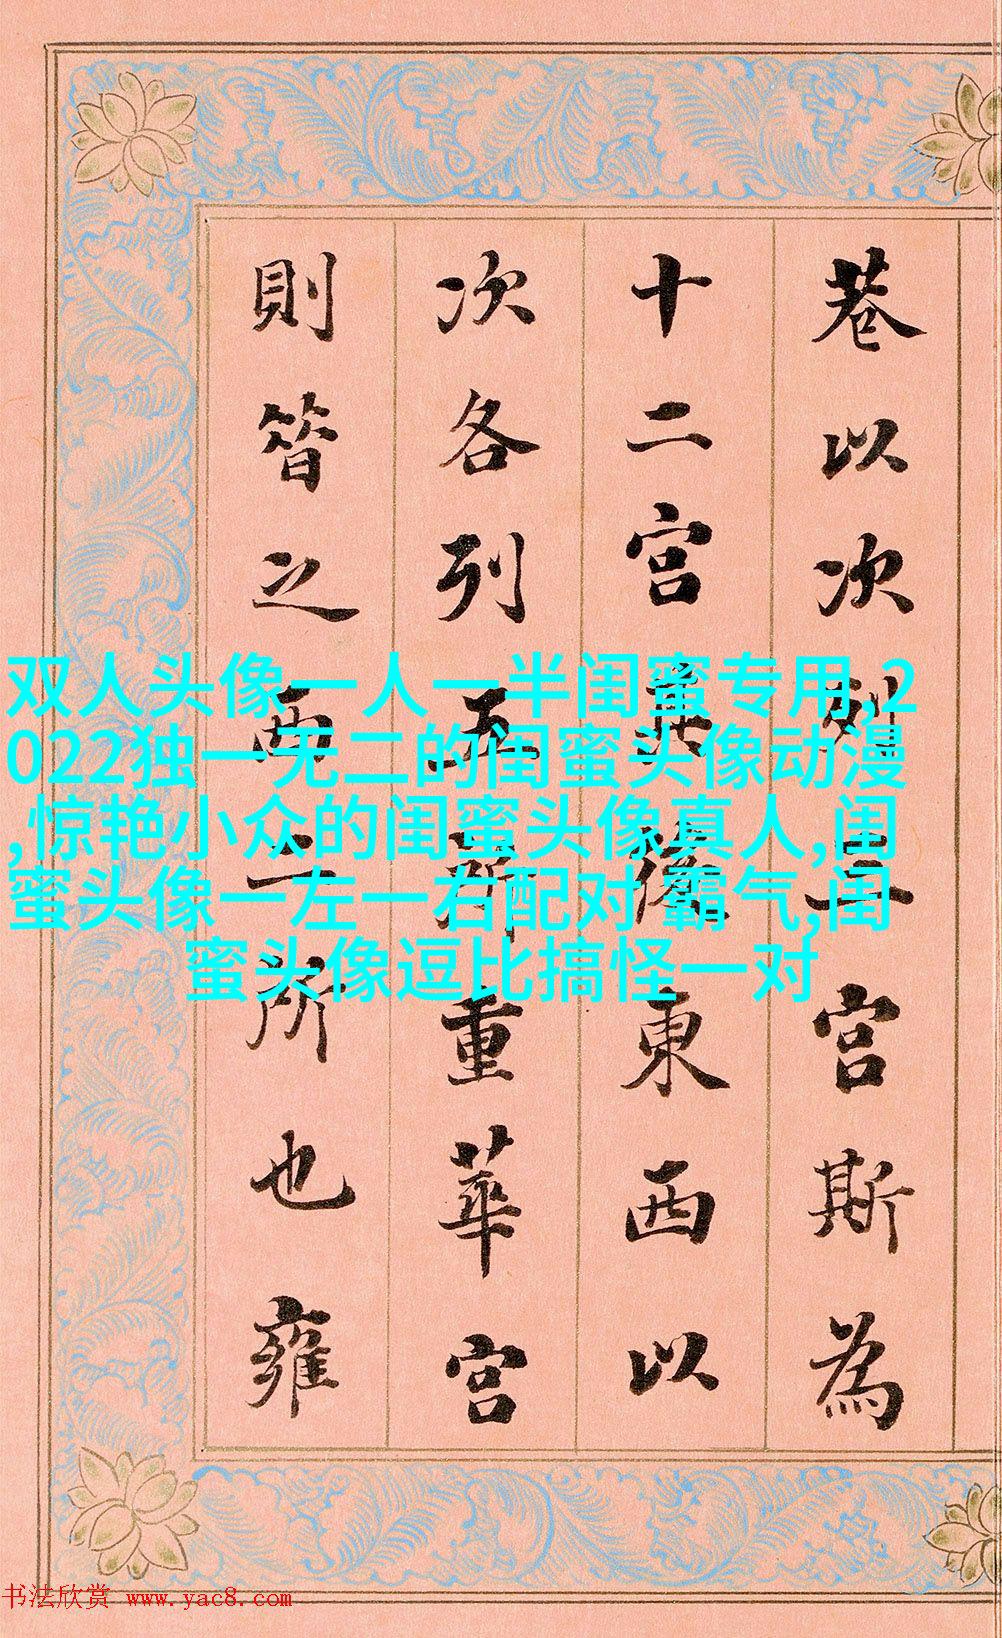 巷以次列六宮斯為
十二宮其後東西以
次各列五所重華宮
則昔之西二所也雍
双人头像一人一半闺蜜专用,2
022独一无二的闺蜜头像动漫
,惊艳小众的闺蜜头像真人,闺
蜜头像一左一右配对 霸气,闺
蜜头像逗比搞怪一对
书法欣赏 www.yac8.com